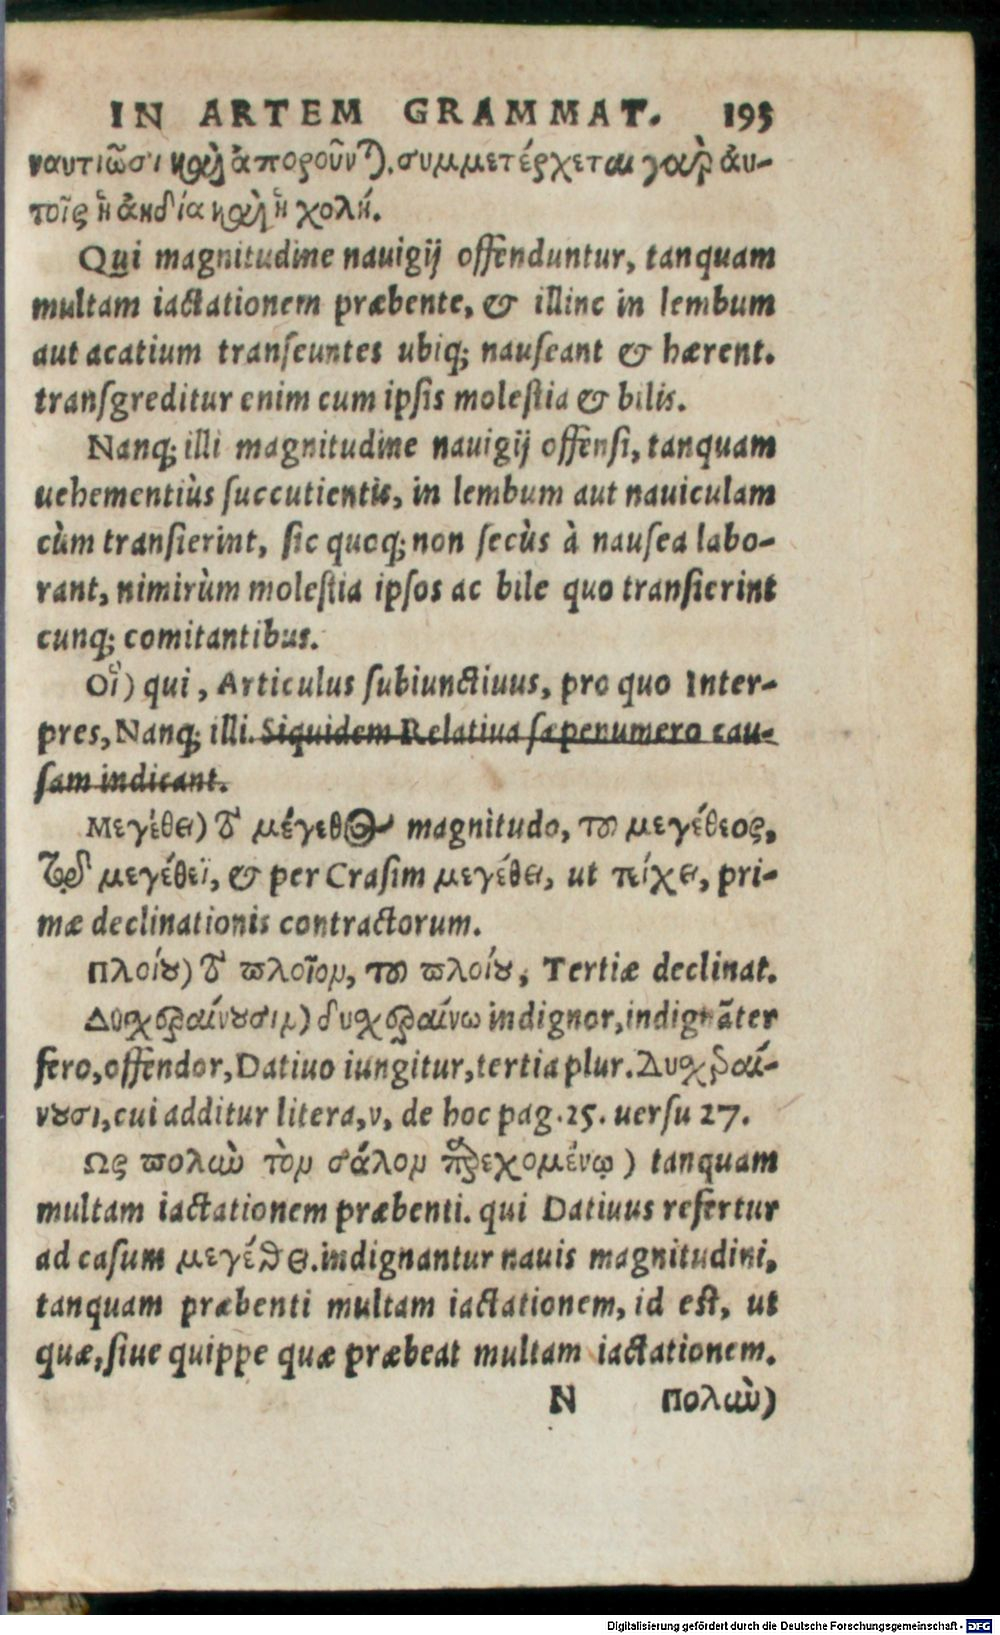 IN ARTEM GRAMMAT. 193
ναυτιῶσι καὶ ἀποροῦνται. συμμετέρχεται γὰρ αὐ-
τοῖς ἡ ἀηδία καὶ ἡ χολή.
Qui magnitudine nauigij offenduntur, tanquam
multam iactationem præbente, & illinc in lembum
aut acatium transeuntes ubiq; nauseant & hærent.
transgreditur enim cum ipsis molestia & bilis.
Nanq; illi magnitudine nauigij offensi, tanquam
uehementiùs succutientis, in lembum aut nauiculam
cùm transierint, sic quoq; non secùs à nausea labo-
rant, nimirùm molestia ipsos ac bile quo transierint
cunq; comitantibus.
Οἳ) qui, Articulus subiunctiuus, pro quo Inter-
pres, Nanq; illi. Siquidem Relatiua sæpenumero cau-
sam indicant.
Μεγέθει) τὸ μέγεθος magnitudo, του μεγέθεος,
τῷ μεγέθεϊ, & per Crasim μεγέθει, ut τείχει, pri-
mæ declinationis contractorum.
Πλοίου) τὸ πλοῖον, του πλοίου, Tertiæ declinat.
Δυσχεραίνουσιν) δυσχεραίνω indignor, indignãter
fero, offendor, Datiuo iungitur, tertia plur. Δυσχεραί-
νουσι, cui additur litera, ν, de hoc pag. 25. uersu 27.
Ως πολὺν τὸν σάλον παρεχομένῳ) tanquam
multam iactationem præbenti. qui Datiuus refertur
ad casum μεγέθει. indignantur nauis magnitudini,
tanquam præbenti multam iactationem, id est, ut
quæ, siue quippe quæ præbeat multam iactationem.
N Πολὺν)
Digitalisierung gefördert durch die Deutsche Forschungsgemeinschaft - DFG